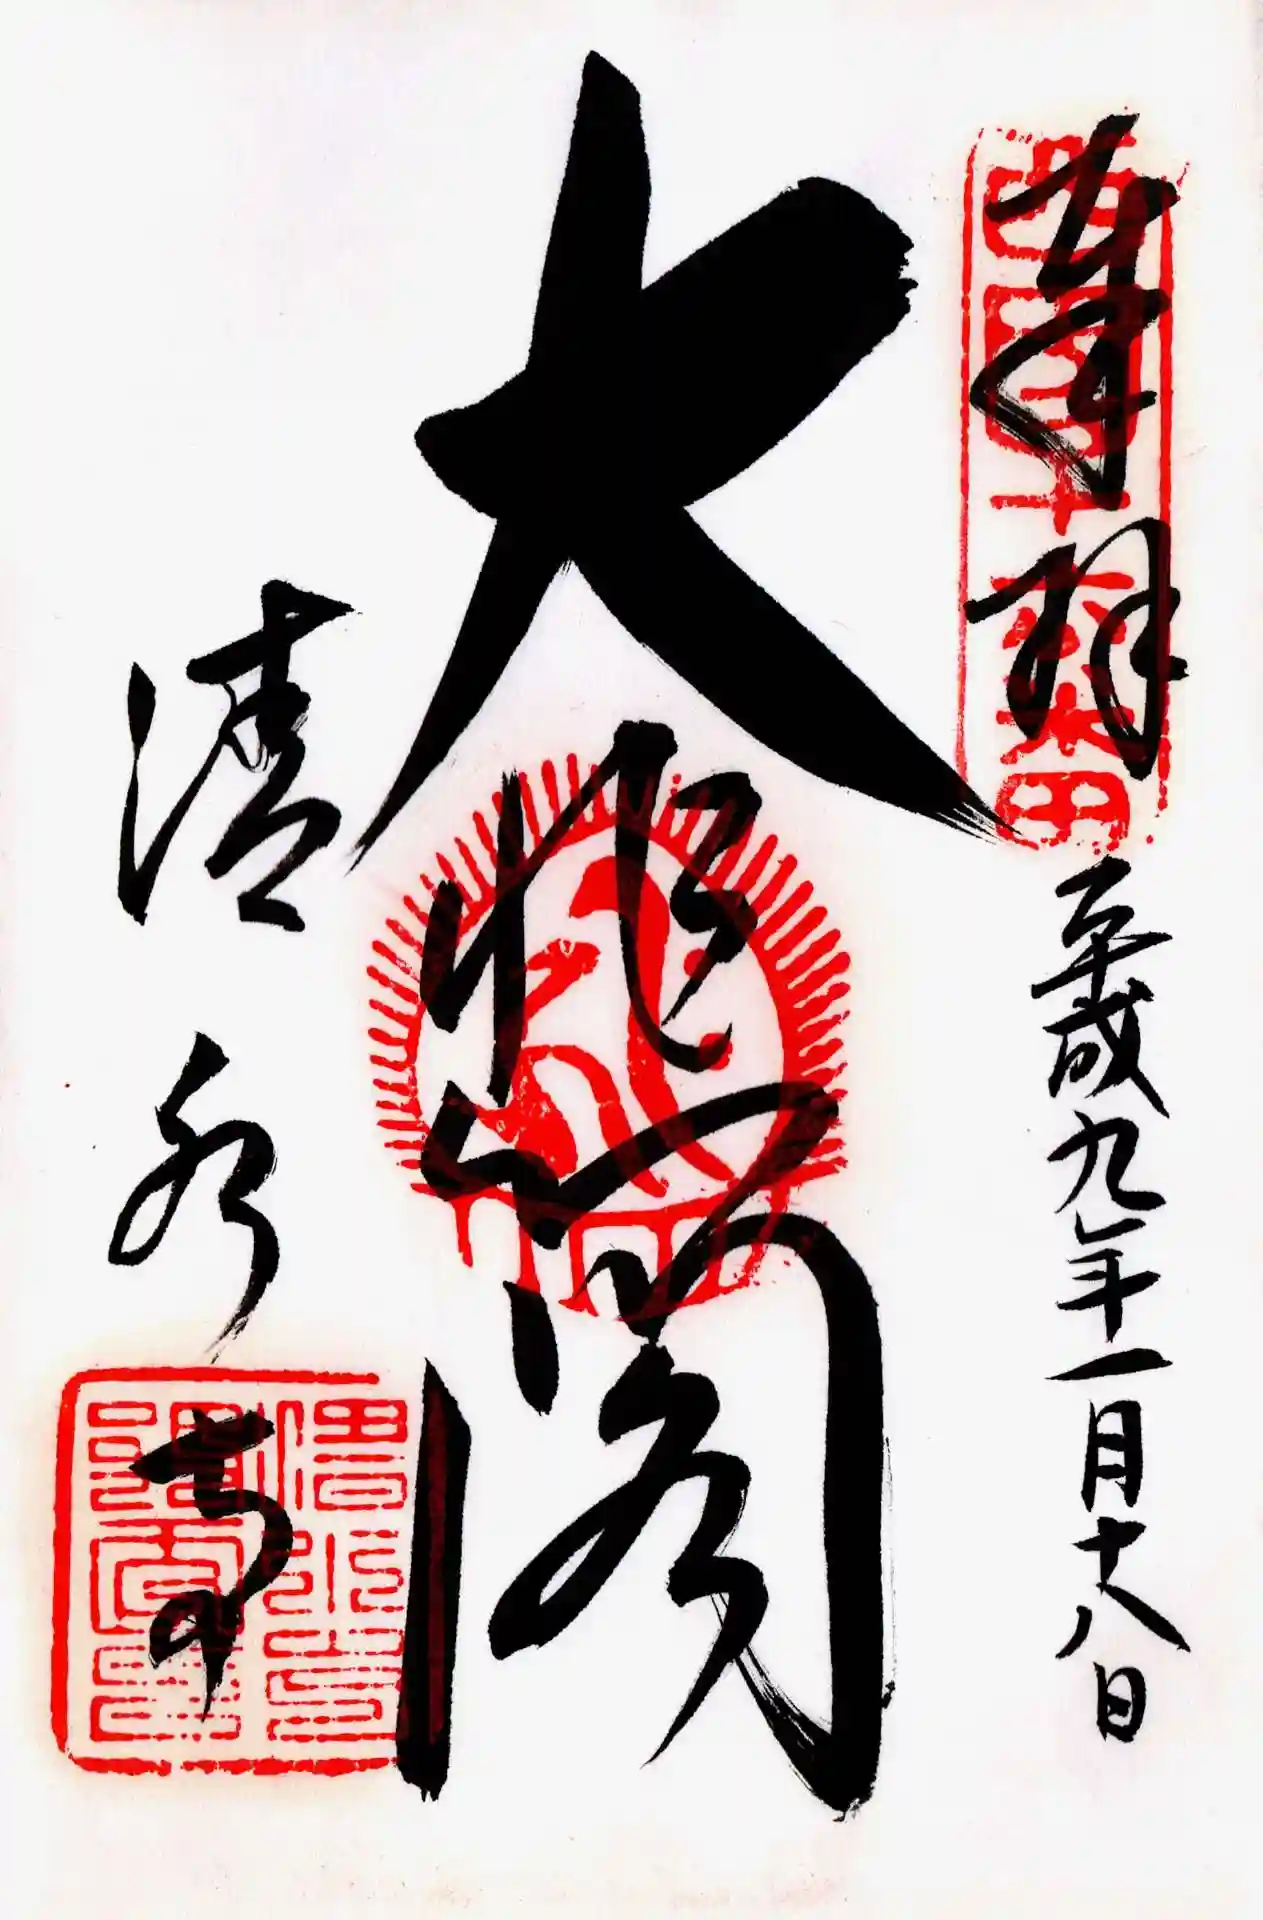 奉拝
西國十六番
平成九年一月十八日
大悲閣
清水寺